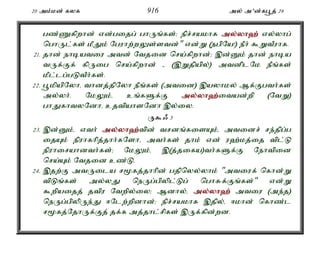 20 அம்மன் கலக 916 அல் அன்கபூத் 29
பண்ணுகிறான் என்பதைப் பாருங்கள்; நிச்சயமாக அல்லாஹ் எல்லாப்
பொருட்கள் மீதும் பேராற்றலுள்ளவன்" என்று (நபியே!) நீர் கூறுவீராக.
21. தான் நாடியவரை அவன் வேதனை செய்கிறான்; இன்னும் தான் நாடிய
வருக்குக் கிருபை செய்கிறான் - (இறுதியில்) அவனிடமே நீங்கள்
மீட்டப்படுவீர்கள்.
22. பூமியிலோ, வானத்திலோ நீங்கள் (அவனை) இயலாமல் ஆக்குபவர்கள்
அல்லர்; மேலும், உங்களுக்கு அல்லாஹ்வையன்றி (வேறு)
பாதுகாவலனோ, உதவியாளனோ இல்லை.
ருகூஃ 3
23. இன்னும், எவர் அல்லாஹ்வின் வசனங்களையும், அவனைச் சந்திப்ப
தையும் நிராகரித்தார்களோ, அவர்கள் தாம் என் ரஹ்மத்தை விட்டு
நிராசையானவர்கள்; மேலும், இ(த்தகைய)வர்களுக்கு நோவினை
செய்யும் வேதனை உண்டு.
24. இதற்கு அவருடைய சமூகத்தாரின் பதிலெல்லாம் "அவரைக் கொன்று
விடுங்கள் அல்லது நெருப்பிலிட்டுப் பொசுக்குங்கள்" என்று
கூறியதைத் தவிர வேறில்லை; ஆனால், அல்லாஹ் அவரை (அந்த)
நெருப்பிலிருந்து ஈடேற்றினான்; நிச்சயமாக இதில், ஈமான் கொண்ட
சமூகத்தாருக்குத் தக்க அத்தாட்சிகள் இருக்கின்றன.